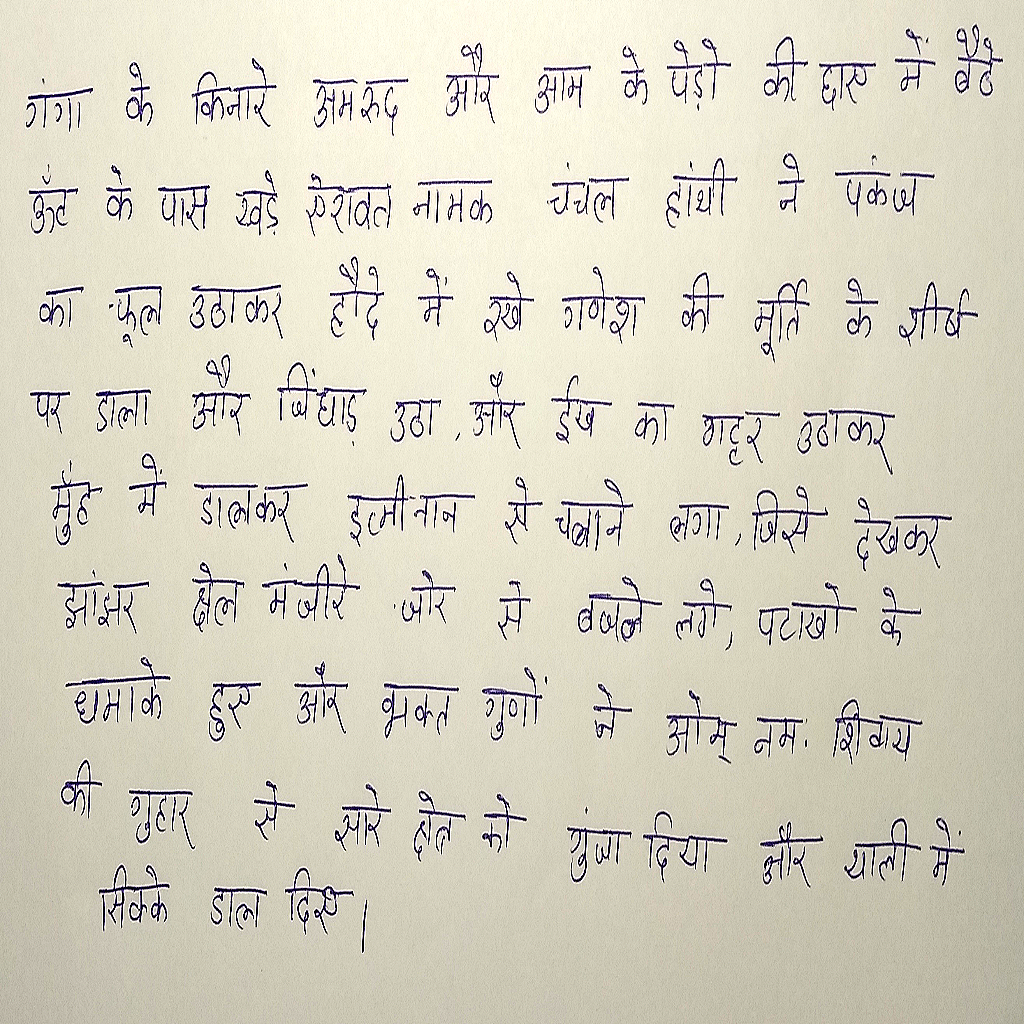 गंगा के किनारे अमरुद और आम के पेड़ो की छाए में बैठे
ऊँट के पास खड़े ऐरावत नामक चंचल हांथी ने पकंज
का फूल उठाकर हौदे में रखे गणेश की मूर्ति के शीर्ष
पर डाला और चिंघाड़ उठा, और ईख का गट्टर उठाकर
मुँह में डालकर इत्मीनान से चबाने लगा, जिसे देखकर
झांझर ढोल मंजीरे जोर से बजने लगे, पटाखो के
धमाके हुए और भक्त गुणों ने ओम् नमः शिवाय
की गुहार से सारे क्षेत्र को गुंजा दिया और थाली में
सिक्के डाल दिए।